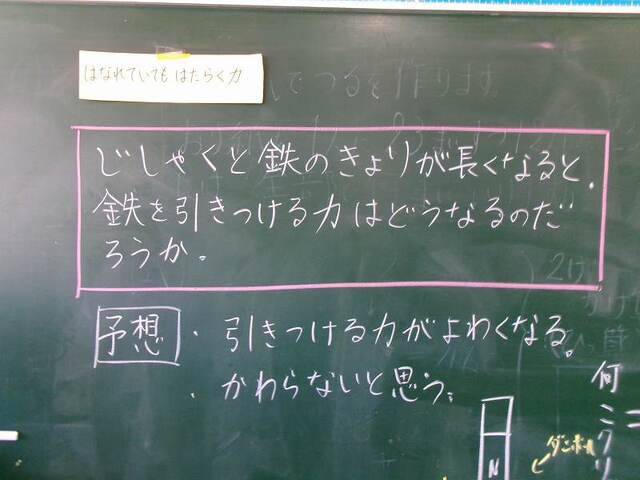 はなれていても はたらく力
じしゃくと鉄のきょりが長くなると、
鉄を引きつける力はどうなるのだ
ろうか。
予想 ・引きつける力がよわくなる。
・かわらないと思う。
N
ダンボール
何こクリ